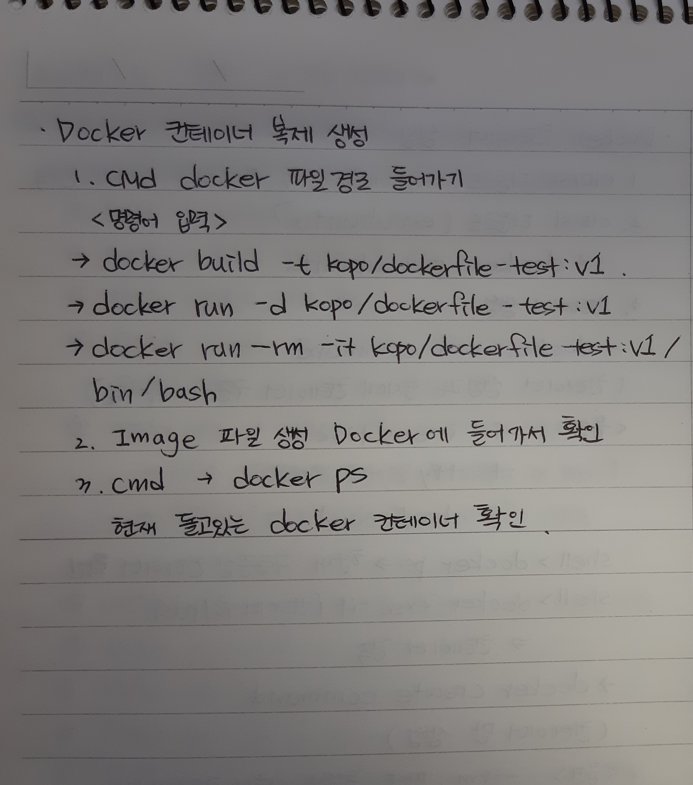 · Docker 컨테이너 복제 생성
1. CMd docker 파일경로 들어가기
<명령어 입력>
→ docker build -t kopo/dockerfile-test:v1 .
→ docker run -d kopo/dockerfile-test:v1
→ docker run -rm -it kopo/dockerfile-test:v1 /
bin/bash
2. Image 파일 생성 Docker에 들어가서 확인
3. cmd → docker ps
현재 돌고있는 docker 컨테이너 확인.